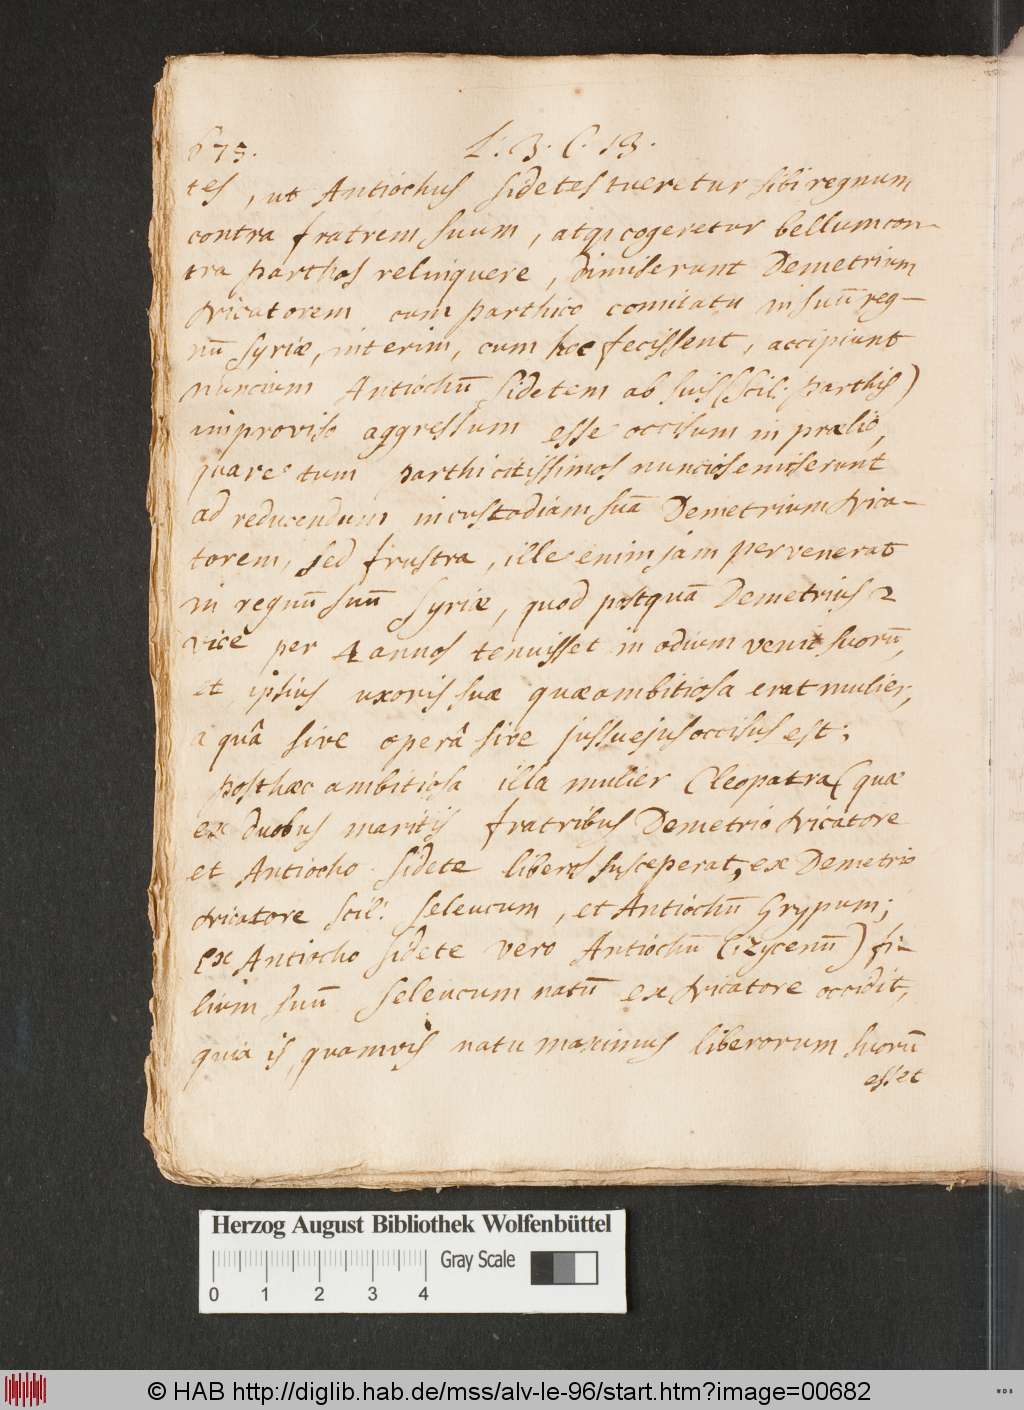 675. L. 3. C. 13.
tes, ut Antiochus Sidetes tueretur sibi regnum
contra fratrem suum, atqe cogeretur bellum con-
tra parthos relinquere, dimiserunt Demetrium
Nicatorem cum parthico comitatu in suū reg-
nū Syriæ, interim, cum hoc fecissent, accipiunt
nuncium Antiochū Sidetem ab suis (scil: parthis)
improviso aggressum esse occisum in prælio,
quare tum parthi citissimos nuncios emiserunt
ad reducendum in custodiam suā Demetrium Nica-
torem, sed frustra, ille enim jam pervenerat
in regnū suū Syriæ, quod postquā Demetrius 2
vice per 4 annos tenuisset in odium venit suorū,
et ipsius uxoris suæ quæ ambitiosa erat mulier,
a quâ sive operâ sive jussu ejus occisus est;
posthæc ambitiosa illa mulier Cleopatra (quæ
ex duobus maritis fratribus Demetrio Nicatore
et Antiocho Sidete liberos susceperat, ex Demetrio
Nicatore scil: Seleucum, et Antiochū Grypum;
ex Antiocho Sidete vero Antiochū Cizycenū) fi-
lium suū Seleucum natū ex Nicatore occidit,
quia is, quamvis natu maximus liberorum suorū
esset
Herzog August Bibliothek Wolfenbüttel
Gray Scale
0 1 2 3 4
© HAB http://diglib.hab.de/mss/alv-le-96/start.htm?image=00682